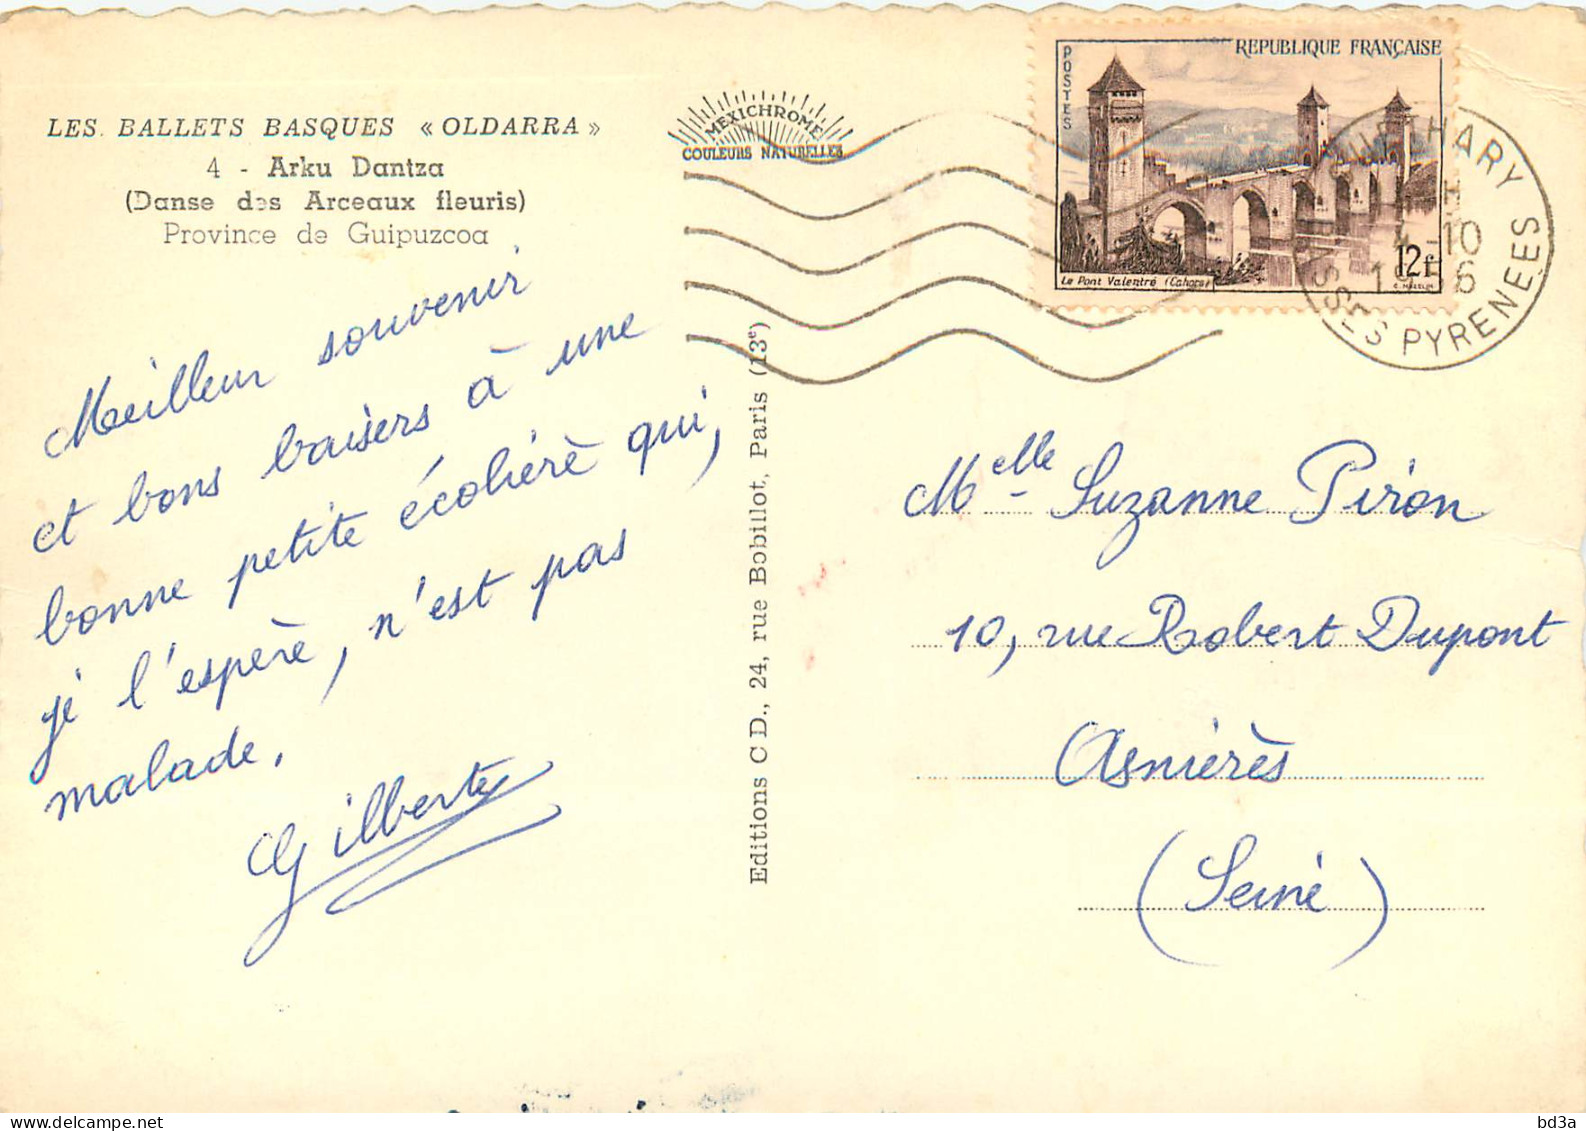 LES BALLETS BASQUES « OLDARRA »
4 - Arku Dantza
(Danse des Arceaux fleuris)
Province de Guipuzcoa
MEXICHROME
COULEURS NATURELLES
POSTES
REPUBLIQUE FRANÇAISE
12f
Le Pont Valentré (Cahors)
GUETHARY
4-10
1956
BSSES PYRENEES
Meilleur souvenir
et bons baisers à une
bonne petite écolière qui,
je l'espère, n'est pas
malade.
Gilberte
Editions C D., 24, rue Bobillot, Paris (13e)
Melle Suzanne Piron
10, rue Robert Dupont
Asnières
(Seine)
bd3a